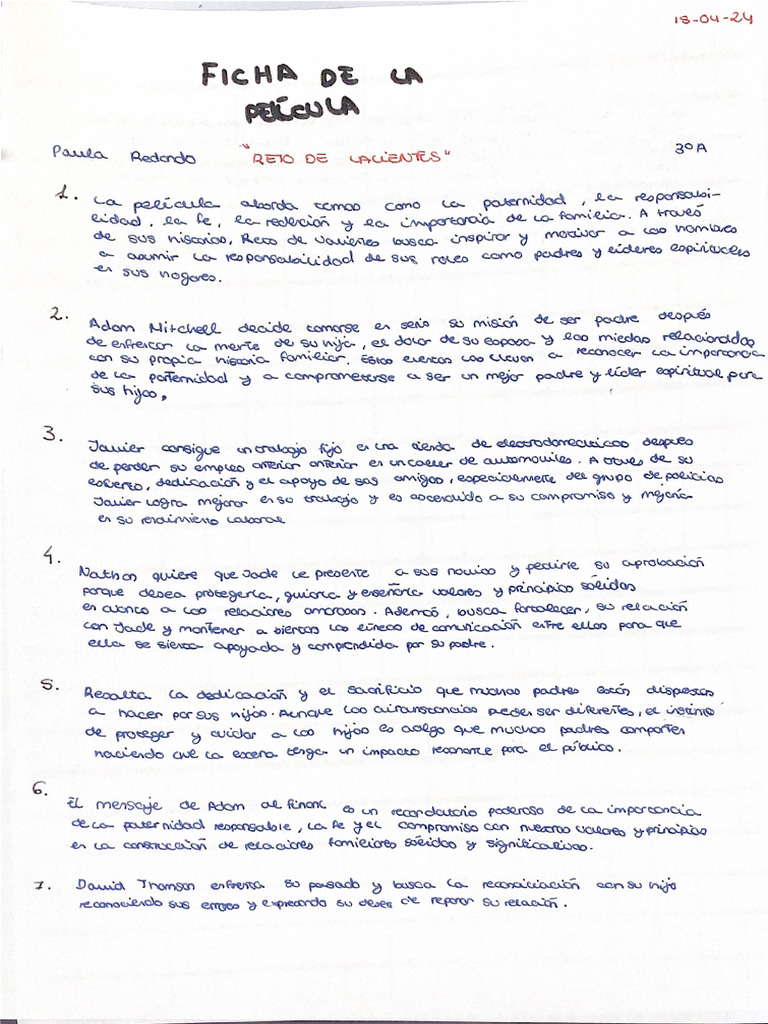 18-04-24
FICHA DE LA
PELÍCULA
Paula Redondo "RETO DE VALIENTES" 3ºA
1. La película aborda temas como la paternidad, la responsabi-
lidad, la fe, la redención y la importancia de la familia. A través
de sus historias, Reto de Valientes busca inspirar y motivar a los hombres
a asumir la responsabilidad de sus roles como padres y líderes espirituales
en sus hogares.
2. Adam Mitchell decide tomarse en serio su misión de ser padre después
de enfrentar la muerte de su hija, el dolor de su esposa y los miedos relacionados
con su propia historia familiar. Estos eventos los llevan a reconocer la importancia
de la paternidad y a comprometerse a ser un mejor padre y líder espiritual para
sus hijos.
3. Javier consigue un trabajo fijo en una tienda de electrodomésticos después
de perder su empleo anterior anterior en un taller de automóviles. A través de su
esfuerzo, dedicación y el apoyo de sus amigos, especialmente del grupo de policías
Javier logra mejorar en su trabajo y es ascendido a su compromiso y mejoría
en su rendimiento laboral
4. Nathan quiere que Jade le presente a sus novios y pedirle su aprobación
porque desea protegerla, guiarla y enseñarle valores y principios sólidos
en cuanto a las relaciones amorosas. Además, busca fortalecer, su relación
con Jade y mantener abiertas las líneas de comunicación entre ellos para que
ella se sienta apoyada y comprendida por su padre.
5. Resalta la dedicación y el sacrificio que muchos padres están dispuestos
a hacer por sus hijos. Aunque las circunstancias pueden ser diferentes, el instinto
de proteger y cuidar a los hijos es algo que muchos padres comparten
haciendo que la escena tenga un impacto resonante para el público.
6. El mensaje de Adam al final es un recordatorio poderoso de la importancia
de la paternidad responsable, la fe y el compromiso con nuestros valores y principios
en la construcción de relaciones familiares sólidas y significativas.
7. David Thomson enfrenta su pasado y busca la reconciliación con su hija
reconociendo sus errores y expresando su deseo de reparar su relación.